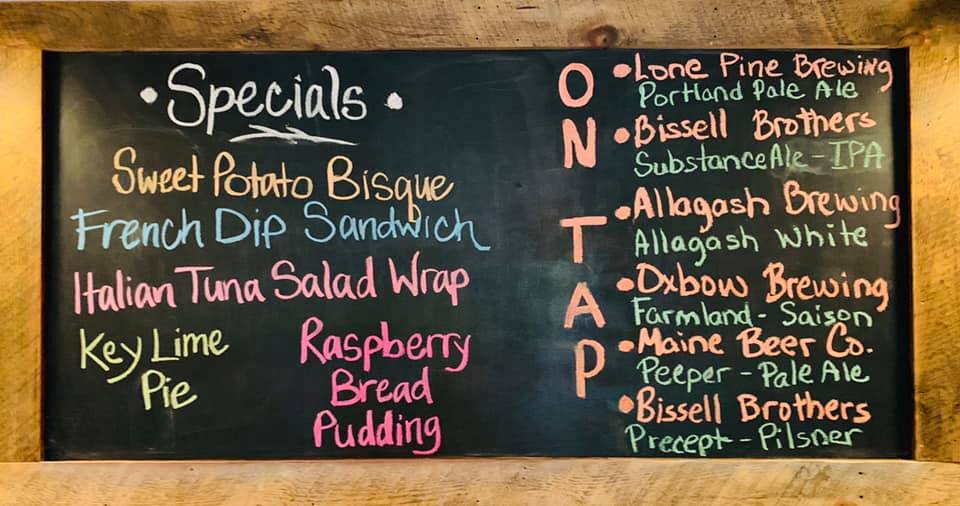 • Specials •
Sweet Potato Bisque
French Dip Sandwich
Italian Tuna Salad Wrap
Key Lime
Pie
Raspberry
Bread
Pudding
ON TAP
• Lone Pine Brewing
Portland Pale Ale
• Bissell Brothers
Substance Ale - IPA
• Allagash Brewing
Allagash White
• Oxbow Brewing
Farmland - Saison
• Maine Beer Co.
Peeper - Pale Ale
• Bissell Brothers
Precept - Pilsner